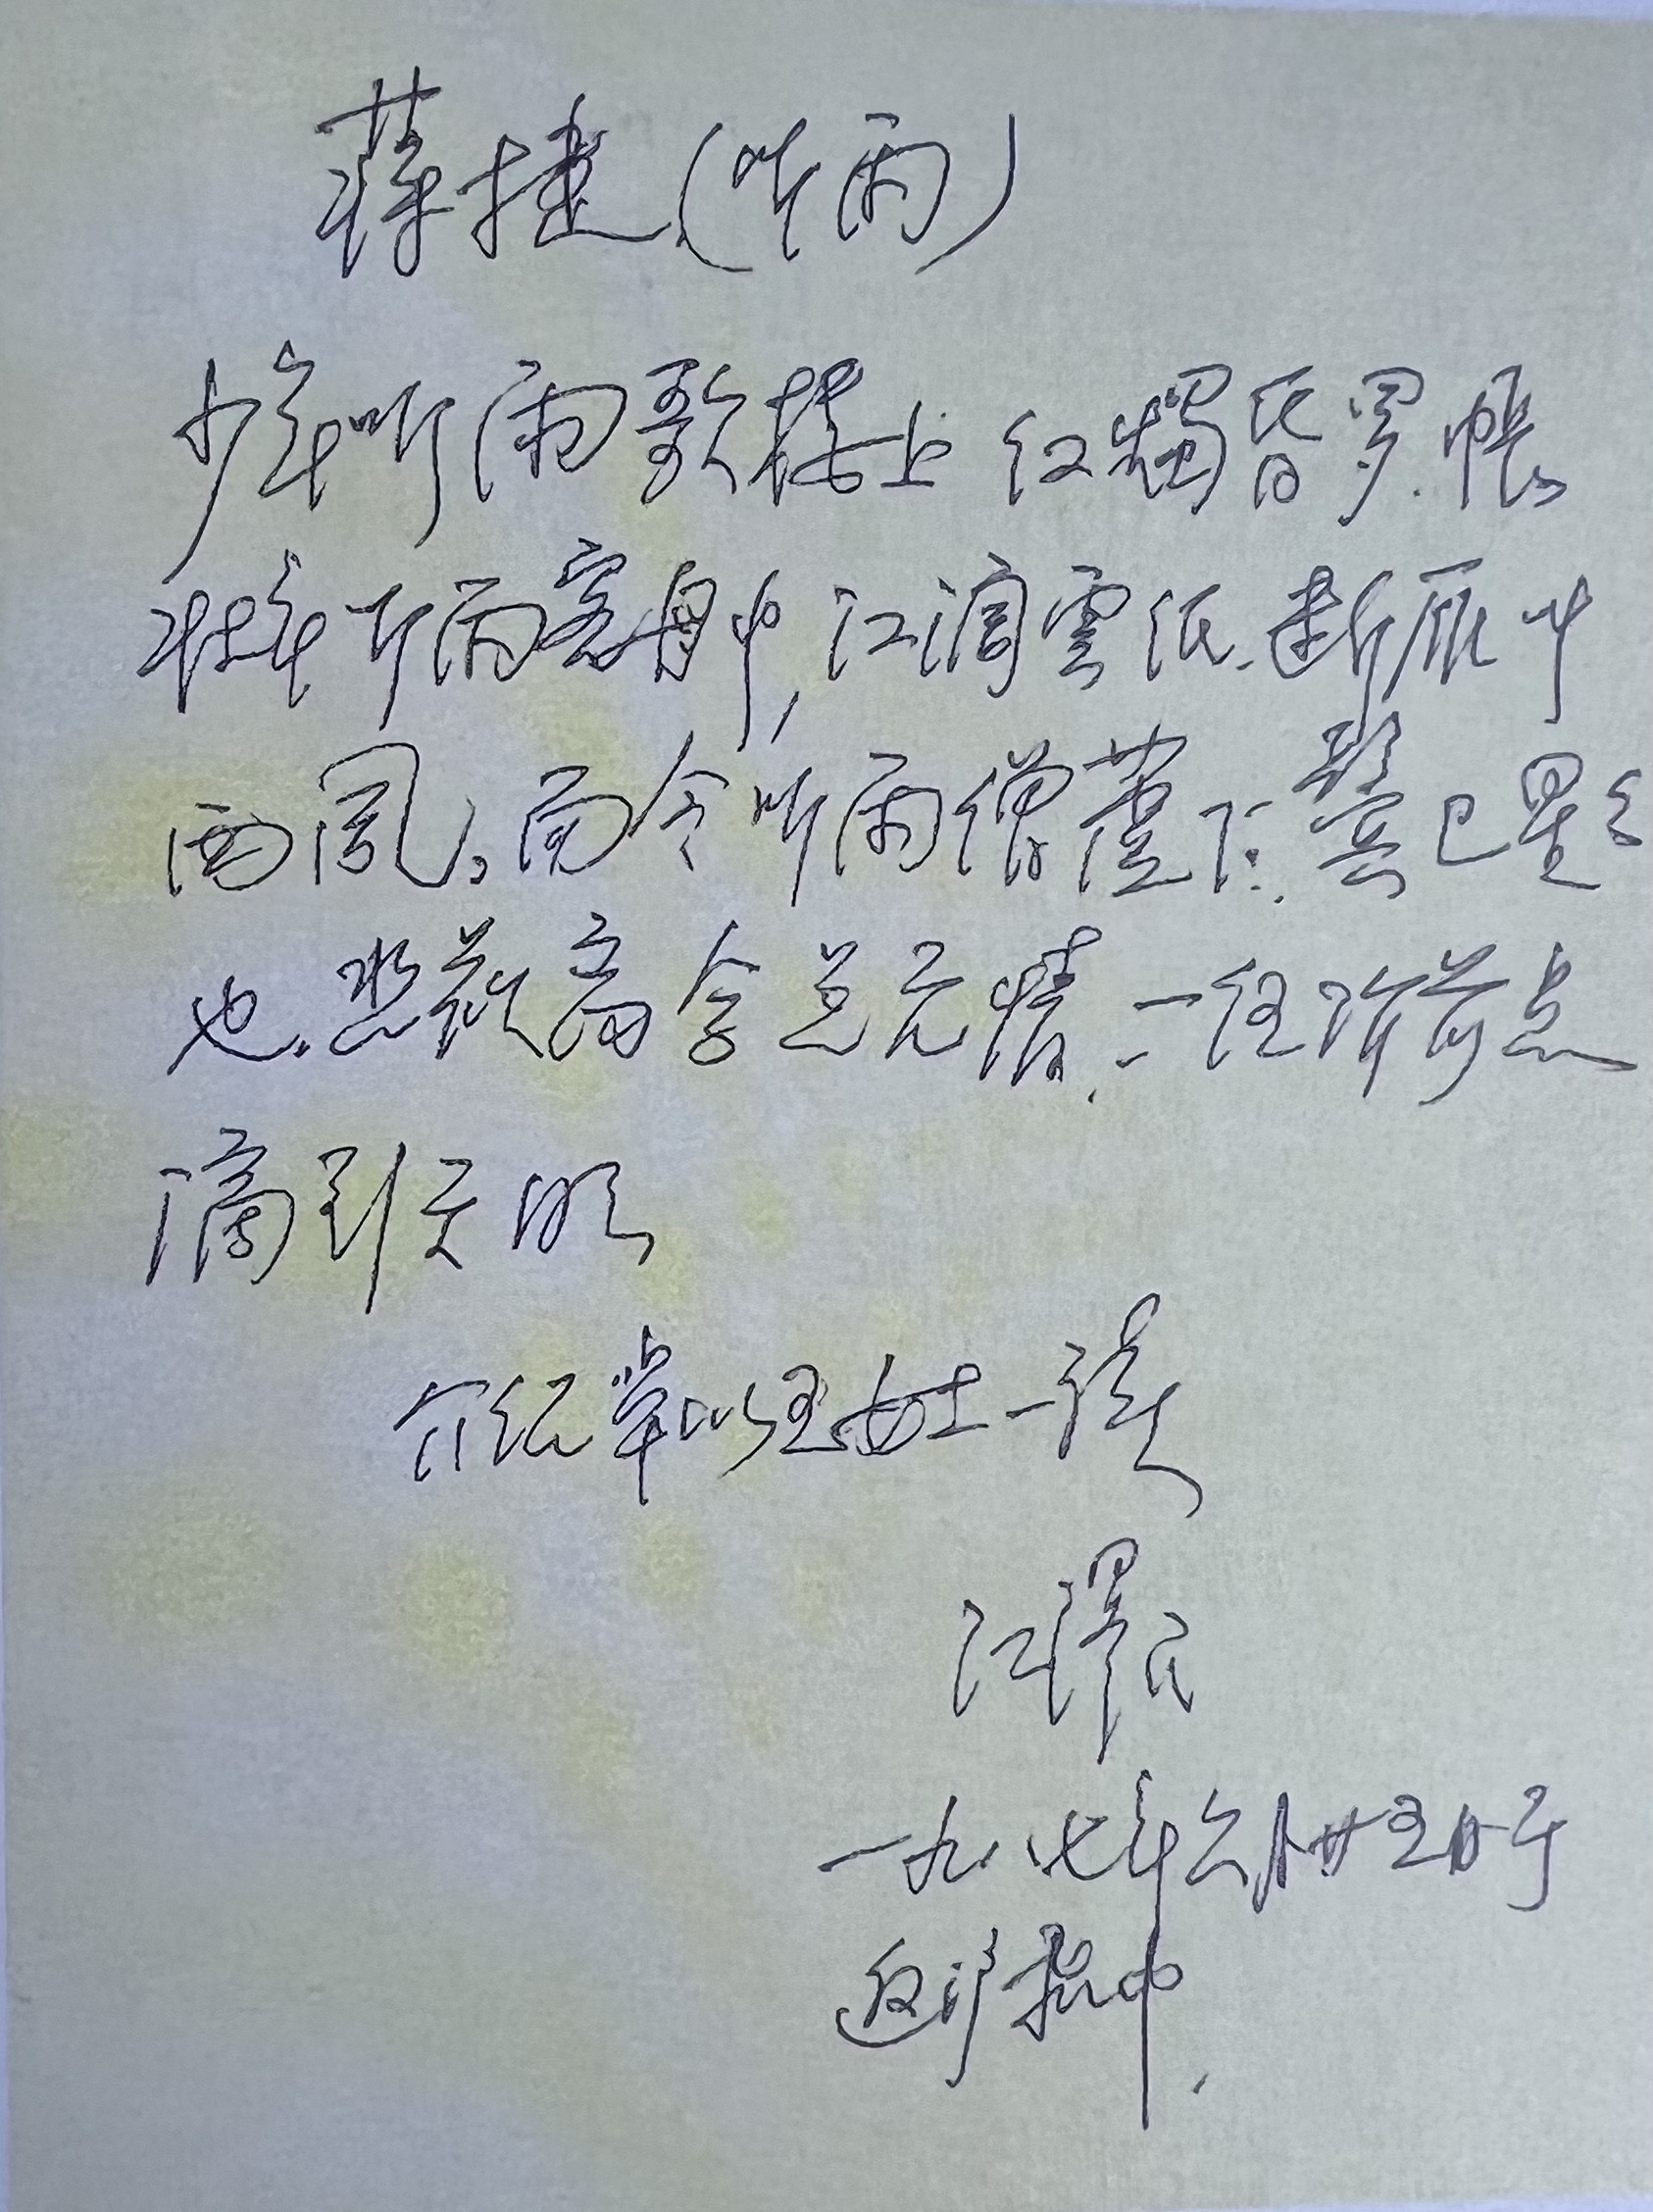 蒋捷(听雨)
少年听雨歌楼上 红燭昏罗帐。
壮年听雨客舟中,江阔雲低.断雁叫
西风。而今听雨僧廬下.鬓已星星
也.悲欢离合总无情.一任阶前点
滴到天明
女士一读
江泽民
一九八七年六月廿五日于
返沪机中.